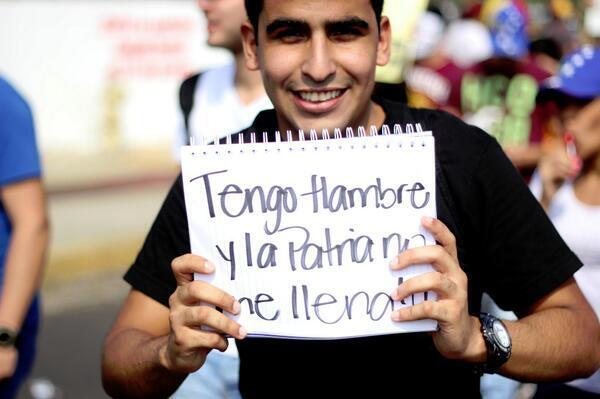 Tengo Hambre
y la Patria no
me llena!!